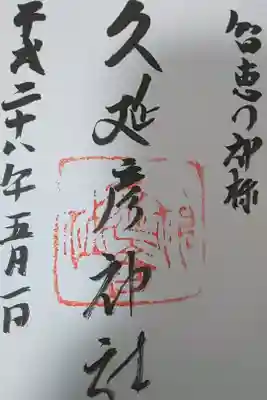 智恵の神様
久延彦神社
平成二十八年五月一日